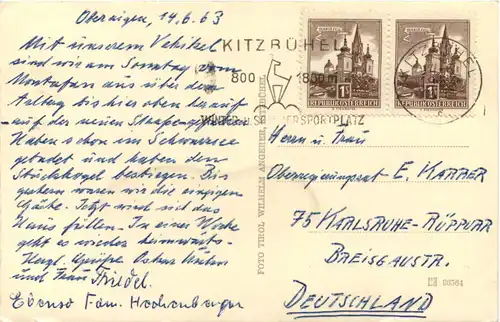 Oberaigen, 14.6.63
Mit unserem Vehikel
sind wir am Sonntag vom
Montafon aus über den
Arlberg bis hier oben herauf
auf der neuen Straße
Haben schon im Schwarzsee
gebadet und haben den
Stuckkogel bestiegen. Bis
gestern waren wir die einzigen
Gäste. Jetzt wird sich das
Haus füllen. In einer Woche
geht es wieder heimwärts.
Herzl. Grüße
und Frau Friedel.
Ebenso Fam.
KITZBÜHEL
800 1800 m
WINTER U. SOMMERSPORTPLATZ
FOTO TIROL WILHELM ANGERER, KITZBÜHEL
MARIAZELL
1S
REPUBLIK ÖSTERREICH
MARIAZELL
1S
REPUBLIK ÖSTERREICH
KITZBÜHEL
Herrn u. Frau
Oberregierungsrat E. KARRER
75 KARLSRUHE-RÜPPURR
BREISGAUSTR.
DEUTSCHLAND